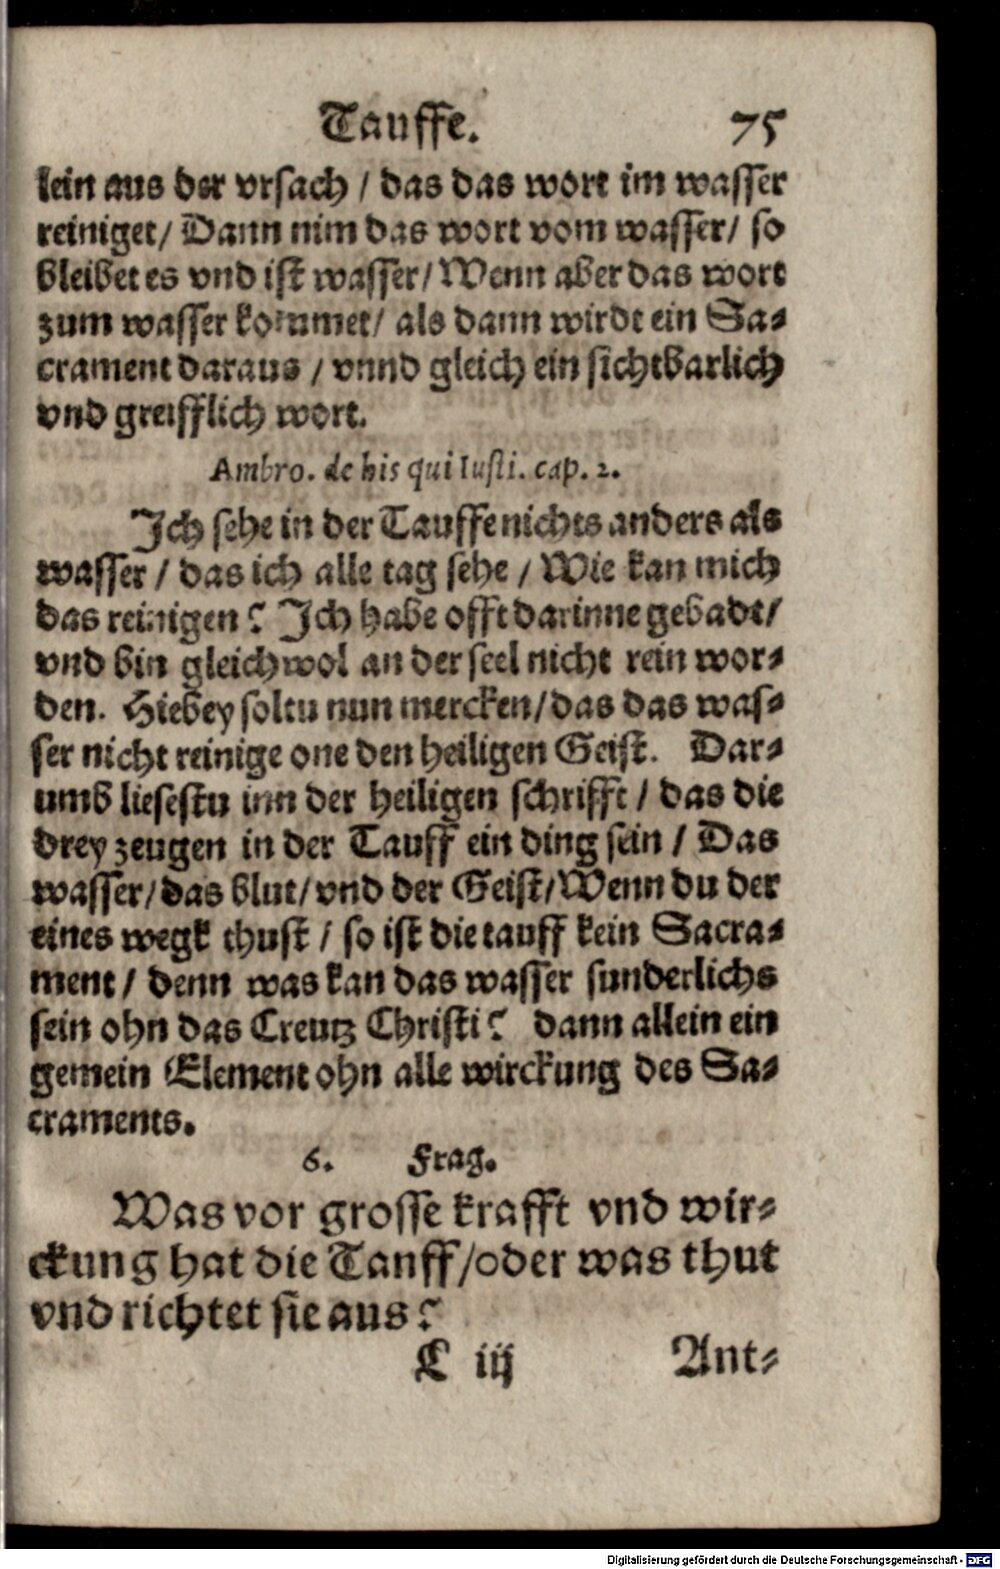 Tauffe. 75
lein aus der vrsach / das das wort im wasser
reiniget / Dann nim das wort vom wasser / so
bleibet es vnd ist wasser / Wenn aber das wort
zum wasser kommet / als dann wirdt ein Sa-
crament daraus / vnnd gleich ein sichtbarlich
vnd greifflich wort.
Ambro. de his qui Iusti. cap. 2.
Ich sehe in der Tauffe nichts anders als
wasser / das ich alle tag sehe / Wie kan mich
das reinigen? Ich habe offt darinne gebadt /
vnd bin gleichwol an der seel nicht rein wor-
den. Hiebey soltu nun mercken / das das was-
ser nicht reinige one den heiligen Geist. Dar-
umb liesestu inn der heiligen schrifft / das die
drey zeugen in der Tauff ein ding sein / Das
wasser / das blut / vnd der Geist / Wenn du der
eines wegk thust / so ist die tauff kein Sacra-
ment / denn was kan das wasser sunderlichs
sein ohn das Creutz Christi? dann allein ein
gemein Element ohn alle wirckung des Sa-
craments.
6. Frag.
Was vor grosse krafft vnd wir-
ckung hat die Tanff / oder was thut
vnd richtet sie aus?
L iij Ant-
Digitalisierung gefördert durch die Deutsche Forschungsgemeinschaft - DFG